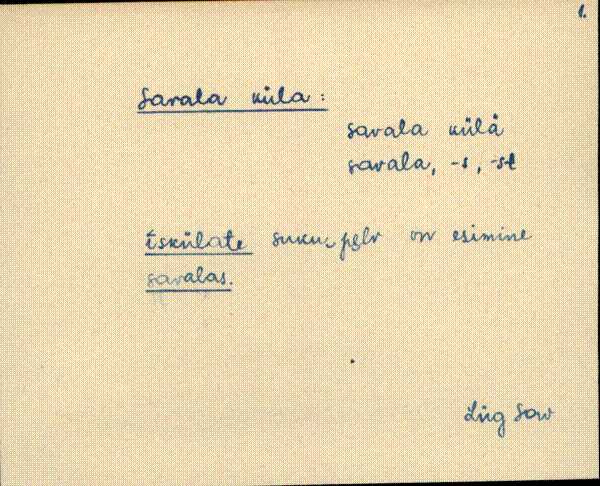 1.
Savala küla:
savala külä
savala, -s, -st
ĩskülate suku, põlv on esimine
savalas.
Lüg Sav